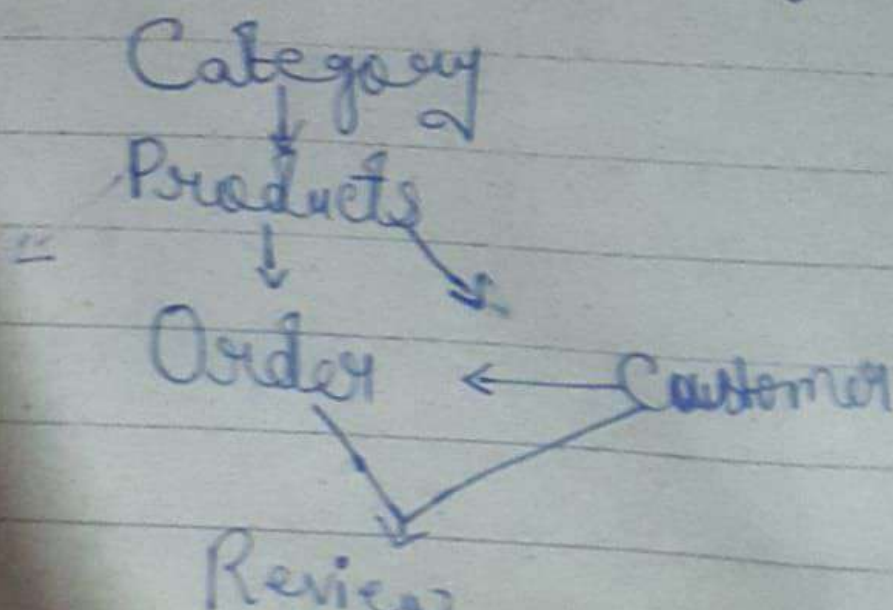 Category
Products
Order
Customer
Review